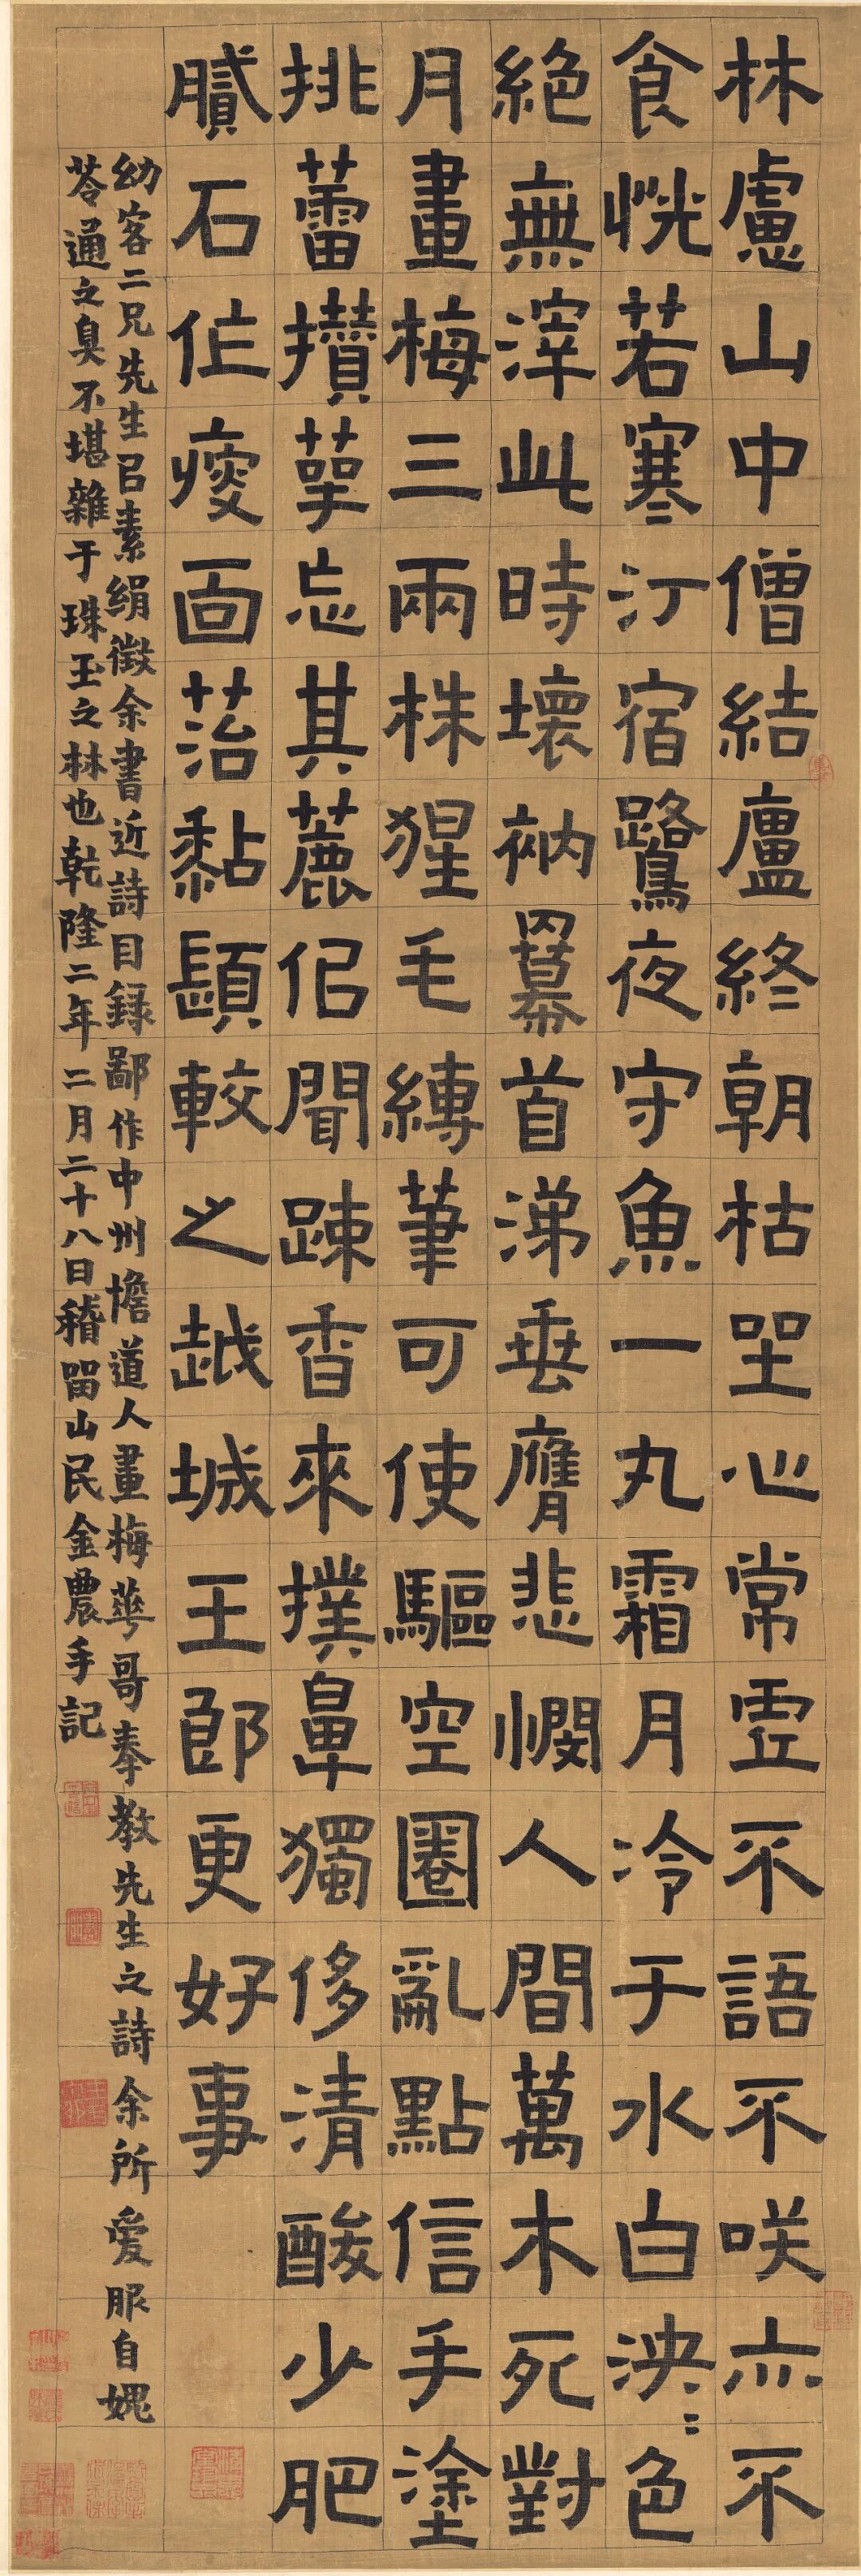 林慮山中僧結廬終朝枯坐心常虛不語不咲亦不
食恍若寒汀宿鷺夜守魚一丸霜月冷于水白泱〻色
絕無滓此時壞衲冪首涕垂膺悲憫人間萬木死對
月畫梅三兩株猩毛縛筆可使驅空圈亂點信手塗
挑蕾攢萼忘其麤但聞疎香來撲鼻獨侈清酸少肥
膩石作瘦面苔黏顋較之越城王郎更好事
幼客二兄先生㠯素絹徵余書近詩目録鄙作中州憺道人畫梅華哥奉教先生之詩余所爱服自媿
苓通之臭不堪雜于珠玉之林也乾隆二年二月二十八日稽留山民金農手記